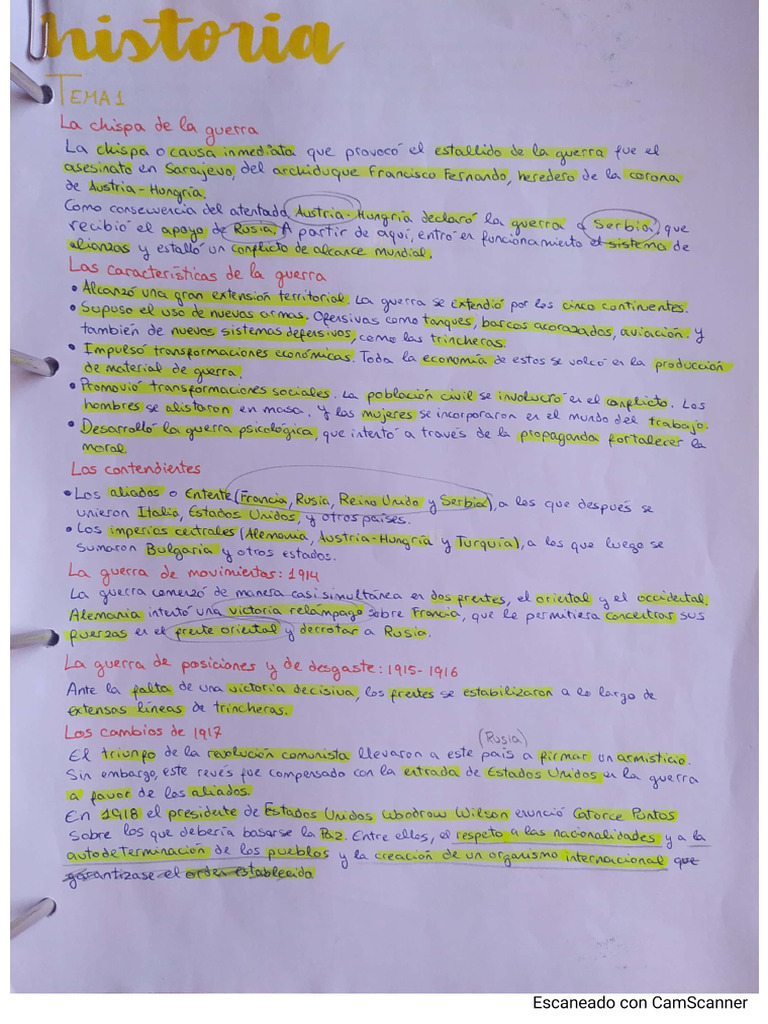 historia
TEMA 1
La chispa de la guerra
La chispa o causa inmediata que provocó el estallido de la guerra fue el
asesinato en Sarajevo, del archiduque Francisco Fernando, heredero de la corona
de Austria-Hungría.
Como consecuencia del atentado, Austria-Hungría declaró la guerra a Serbia, que
recibió el apoyo de Rusia. A partir de aquí, entró en funcionamiento el sistema de
alianzas y estalló un conflicto de alcance mundial.
Las características de la guerra
• Alcanzó una gran extensión territorial. La guerra se extendió por los cinco continentes.
• Supuso el uso de nuevas armas. Ofensivas como tanques, barcos acorazados, aviación. y
también de nuevos sistemas defensivos, como las trincheras.
• Impulsó transformaciones económicas. Toda la economía de estos se volcó en la producción
de material de guerra.
• Promovió transformaciones sociales. La población civil se involucró en el conflicto. Los
hombres se alistaron en masa. y las mujeres se incorporaron en el mundo del trabajo.
• Desarrolló la guerra psicológica, que intentó a través de la propaganda fortalecer la
moral
Los contendientes
• Los aliados o Entente (Francia, Rusia, Reino Unido y Serbia), a los que después se
unieron Italia, Estados Unidos, y otros países.
• Los imperios centrales (Alemania, Austria-Hungría y Turquía), a los que luego se
sumaron Bulgaria y otros estados.
La guerra de movimientos: 1914
La guerra comenzó de manera casi simultánea en dos frentes, el oriental y el occidental.
Alemania intentó una victoria relámpago sobre Francia, que le permitiera concentrar sus
fuerzas en el frente oriental y derrotar a Rusia.
La guerra de posiciones y de desgaste: 1915-1916
Ante la falta de una victoria decisiva, los frentes se estabilizaron a lo largo de
extensas líneas de trincheras.
Los cambios de 1917
(Rusia)
El triunfo de la revolución comunista llevaron a este país a firmar un armisticio.
Sin embargo, este revés fue compensado con la entrada de Estados Unidos en la guerra
a favor de los aliados.
En 1918 el presidente de Estados Unidos Woodrow Wilson enunció Catorce Puntos
sobre los que debería basarse la Paz. Entre ellos, el respeto a las nacionalidades y a la
autodeterminación de los pueblos y la creación de un organismo internacional que
garantizase el orden establecido
Escaneado con CamScanner